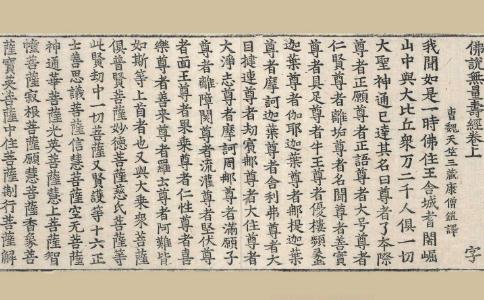 佛說無量壽經卷上 字
曹魏天竺三藏康僧鎧譯
我聞如是一時佛住王舍城耆闍崛
山中與大比丘眾萬二千人俱一切
大聖神通已達其名曰尊者了本際
尊者正願尊者正語尊者大号尊者
仁賢尊者離垢尊者名聞尊者善實
尊者具足尊者牛王尊者優樓頻蠡
迦葉尊者伽耶迦葉尊者那提迦葉
尊者摩訶迦葉尊者舍利弗尊者大
目揵連尊者劫賓那尊者大住尊者
大淨志尊者摩訶周那尊者滿願子
尊者離障閡尊者流灌尊者堅伏尊
者面王尊者乘尊者仁性尊者喜
樂尊者善來尊者羅云尊者阿難皆
如斯等上首者也又與大乘眾菩薩
俱普賢菩薩妙德菩薩慈氏菩薩等
此賢劫中一切菩薩又賢護等十六正
士善思議菩薩信慧菩薩空无菩薩
神通華菩薩光英菩薩慧上菩薩智
幢菩薩寂根菩薩願慧菩薩香象菩
薩寶英菩薩中住菩薩制行菩薩解